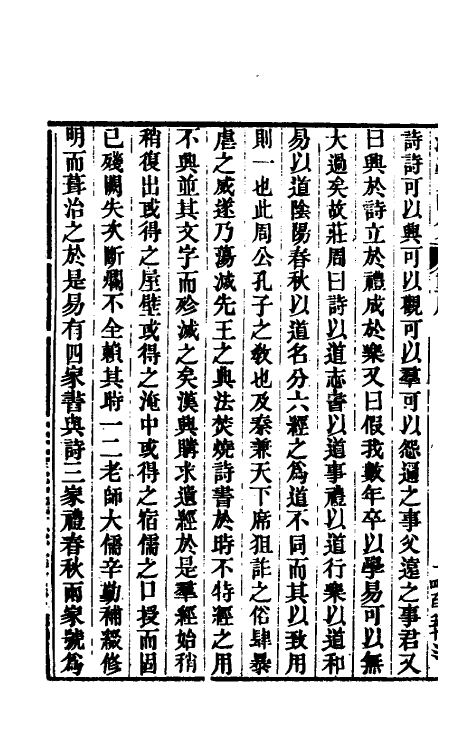 詩詩可以興可以觀可以羣可以怨邇之事父遠之事君又
曰興於詩立於禮成於樂又曰假我數年卒以學易可以無
大過矣故莊周曰詩以道志書以道事禮以道行樂以道和
易以道陰陽春秋以道名分六經之為道不同而其以致用
則一也此周公孔子之教也及秦兼天下席狙詐之俗肆暴
虐之威遂乃蕩滅先王之典法焚燒詩書於時不特經之用
不興並其文字而殄滅之矣漢興購求遺經於是羣經始稍
稍復出或得之屋壁或得之淹中或得之宿儒之口授而固
已殘闕失次斷爛不全賴其時一二老師大儒辛勤補綴修
明而葺治之於是易有四家書與詩三家禮春秋兩家號為